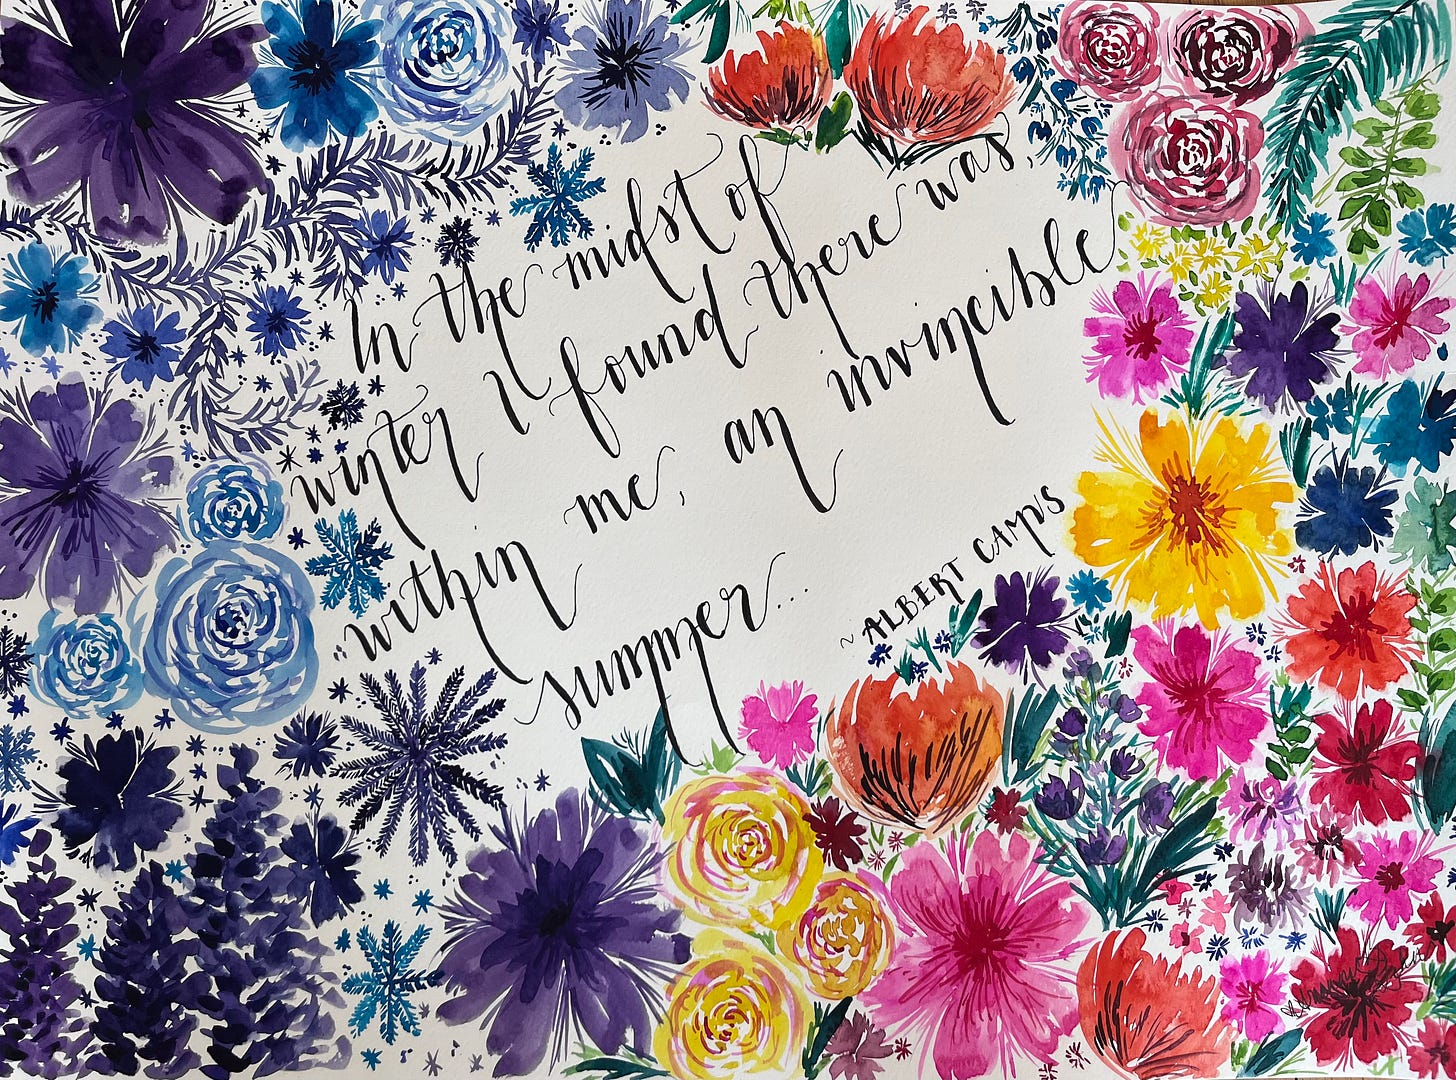 In the midst of
winter I found there was,
within me, an invincible
summer...
~ALBERT CAMUS